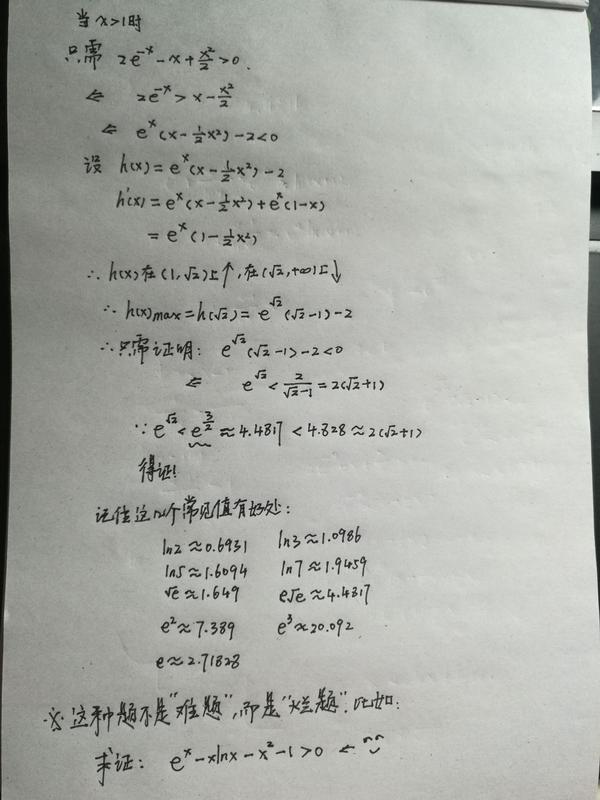 当 x>1时
只需 2e^{-x} - x + x²/2 > 0.
⇐ 2e^{-x} > x - x²/2
⇐ e^x (x - ½x²) - 2 < 0
设 h(x) = e^x (x - ½x²) - 2
h'(x) = e^x (x - ½x²) + e^x (1-x)
= e^x (1 - ½x²)
∴ h(x)在(1, √2)上↑, 在(√2, +∞)上↓
∴ h(x)max = h(√2) = e^{√2} (√2-1) - 2
∴ 只需证明: e^{√2} (√2-1) - 2 < 0
⇐ e^{√2} < 2/(√2-1) = 2(√2+1)
∵ e^{√2} < e^{3/2} ≈ 4.4817 < 4.828 ≈ 2(√2+1)
得证!
记住这几个常见值有好处:
ln2 ≈ 0.6931 ln3 ≈ 1.0986
ln5 ≈ 1.6094 ln7 ≈ 1.9459
√e ≈ 1.649 e√e ≈ 4.4817
e² ≈ 7.389 e³ ≈ 20.092
e ≈ 2.71828
※ 这种题不是"难题", 而是"烂题". 比如:
求证: e^x - xlnx - x² - 1 > 0 ←